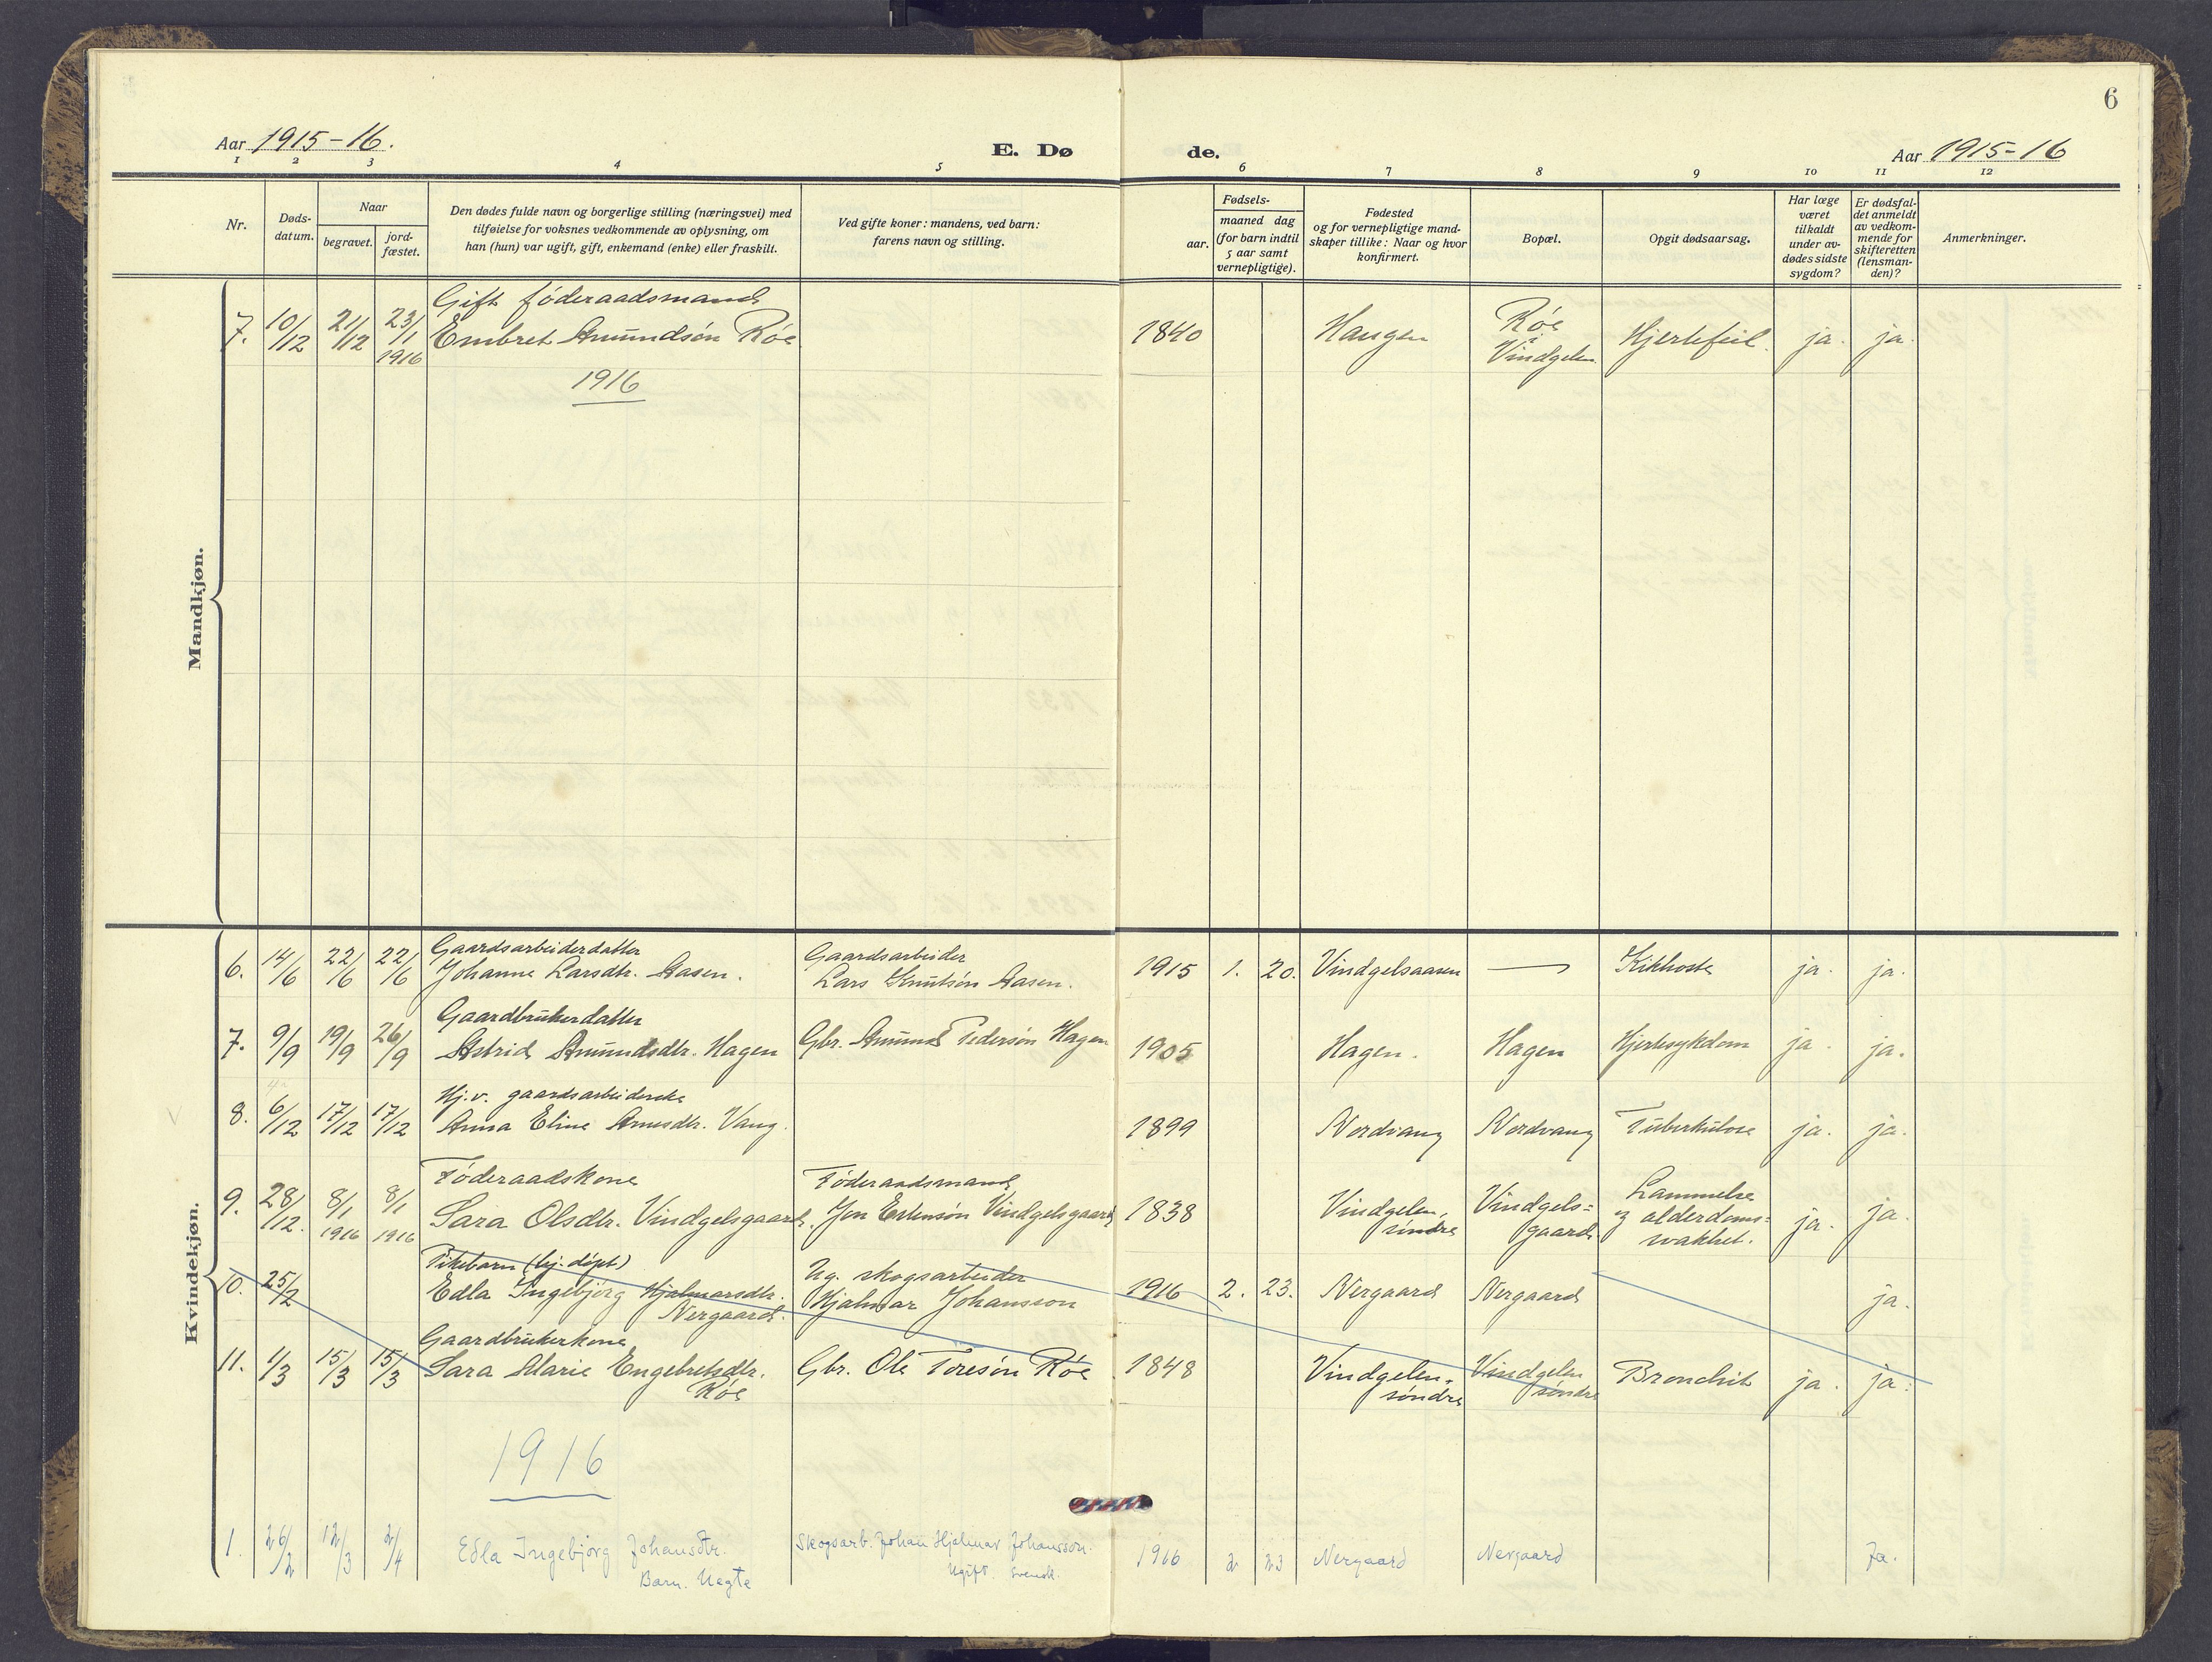 6
Aar 1915-16.
E. Dø
de.
Aar 1915-16
1 2 3 4 5 6 7 8 9 10 11 12
Nr.
Døds-
datum.
Naar
begravet.
jord-
fæstet.
Den dødes fulde navn og borgerlige stilling (næringsvei) med
tilføielse for voksnes vedkommende av oplysning, om
han (hun) var ugift, gift, enkemand (enke) eller fraskilt.
Ved gifte koner: mandens, ved barn:
farens navn og stilling.
Fødsels-
aar.
maaned dag
(for barn indtil
5 aar samt
vernepligtige).
Fødested
og for vernepligtige mand-
skaper tillike: Naar og hvor
konfirmert.
Bopæl.
Opgit dødsaarsag.
Har læge
været
tilkaldt
under av-
dødes sidste
sygdom?
Er dødsfal-
det anmeldt
av vedkom-
mende for
skifteretten
(lensman-
den)?
Anmerkninger.
Mandkjøn.
Gift føderaadsmand
7. 10/12 21/12 23/1 1916 Embret Amundsøn Røe 1840 Haugen Røe i Vindgelen Hjertefeil. ja. ja.
1916
Kvindekjøn.
Gaardsarbeiderdatter Gaardsarbeider
6. 14/6 22/6 22/6 Johanne Larsdtr. Aasen. Lars Knutsøn Aasen. 1915 1. 20. Vindgelsaasen — Kikhoste ja. ja.
Gaardbrukerdatter
7. 9/9 19/9 26/9 Astrid Amundsdtr. Hagen Gbr. Amund Pedersøn Hagen 1905 Hagen. Hagen Hjertesykdom ja. ja.
Hj.v. gaardsarbeiderske
8. 6/12 17/12 17/12 Anna Eline Arnesdtr. Vang. 1899 Nordvang Nordvang Tuberkulose ja. ja.
Føderaadskone Føderaadsmand
9. 28/12. 8/1 1916 8/1 1916 Sara Olsdtr. Vindgelsgaard. Jon Estensøn Vindgelsgaard 1838 Vindgelen, søndre Vindgels=gaard Lammelse og alderdoms=svakhet. ja. ja.
Pikebarn (hj. døpt) Ug. skogsarbeider
10. 25/2 Edla Ingebjørg Hjalmarsdtr. Nergaard. Hjalmar Johansson 1916 2. 23. Nergaard Nergaard ja.
Gaardbrukerkone
11. 1/3 15/3 15/3 Sara Marie Engebretsdtr. Røe Gbr. Ole Toresøn Røe 1848 Vindgelen, søndre Vindgelen søndre Bronchit ja. ja.
1916
1. 26/2 12/3 2/4 Edla Ingebjørg Johansdtr. Skogsarb. Johan Hjalmar Johansson. 1916 2 23 Nergaard Nergaard Ja.
Barn. Uegte Ugift. svensk.